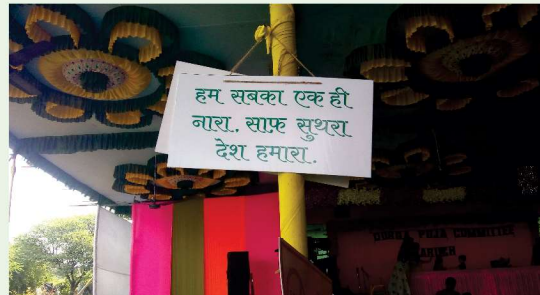 हम सबका एक ही
नारा. साफ़ सुथरा
देश हमारा.
DURGA PUJA COMMITTEE